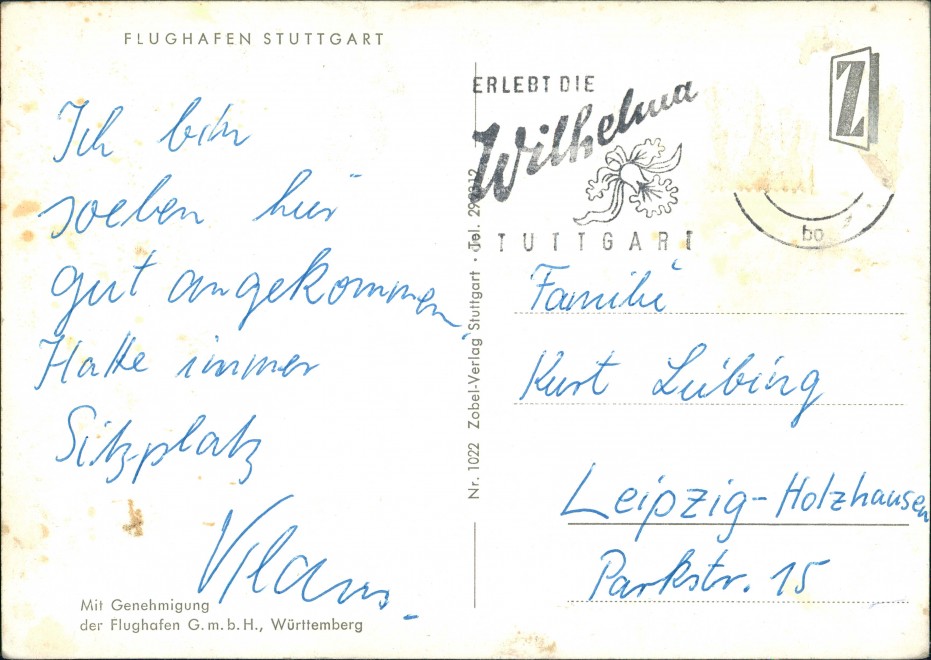 FLUGHAFEN STUTTGART
Ich bin
soeben hier
gut angekommen.
Hatte immer
Sitzplatz
Mit Genehmigung
der Flughafen G.m.b.H., Württemberg
Nr. 1022 Zobel-Verlag Stuttgart · Tel.
ERLEBT DIE
Wilhelma
TUTTGART
Z
bo
Familie
Kurt Leibing
Leipzig-Holzhausen
Parkstr. 15